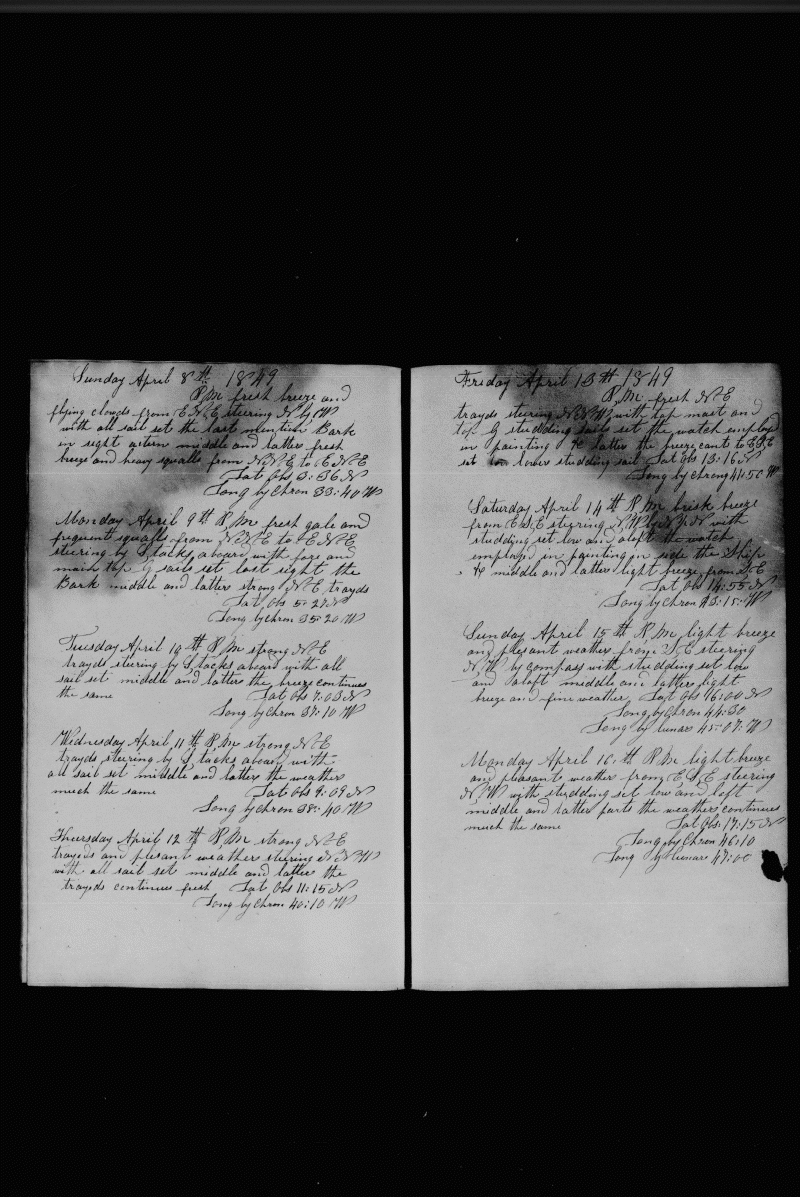 Sunday April 8th 1849
P,M fresh breeze and
flying clouds from E N,E steering N by W
with all sail set the last mention Bark
in sight astern middle and latter fresh
breeze and heavy squalls from N,N,E to E N,E
Lat Obs 3:36 N
Long by Chron 33:40 W
Monday April 9th P,M fresh gale and
frequent squalls from N,N,E to E N,E
steering by S,tacks aboard with fore and
main top G sails set lost sight the
Bark middle and latter strong N,E trayds
Lat Obs 5:27 N
Long by Chron 35:20 W
Tuesday April 10th P,M strong N,E
trayds steering by S,tacks aboard with all
sail set middle and latter the breeze continues
the same Lat Obs 7:03 N
Long by Chron 37:10 W
Wednesday April 11th P,M strong N,E
trayds steering by S,tacks aboard with
all sail set middle and latter the weather
much the same Lat Obs 9:09 N
Long by Chron 38:40 W
Thursday April 12th P,M strong N,E
trayeds and plesant weather steering N,N,W
with all sail set middle and latter the
trayeds continues fresh Lat Obs 11:15 N
Long by Chron 40:10 W
Friday April 13th 1849
P,M fresh N,E
trayds steering N,N,W with top mast and
top G studding sails set the watch employd
in painting &c latter the breeze cants to E,S,E
set lower studding sail Lat Obs 13:16 N
Long by Chrong 41:50 W
Saturday April 14th P,M brisk breeze
from E,S,E steering N,W by N,N with
studding set low and aloft the watch
employd in painting in side the Ship
&c middle and latter light breeze from
Lat Ob 14:55 N
Long by Chron 43:15 W
Sunday April 15th P,M light breeze
and plesant weather from S,E steering
N,W by compass with studding set low
and aloft middle and latter light
breeze and fine weather, Lat Obs 16:00 N
Long by Chron 44:30
Long by lunar 45:07 W
Monday April 16th P,M light breeze
and pleasant weather from E,S,E steering
N,W with studding set low and loft
middle and latter parts the weather continues
much the same Lat Obs 17:15 N
Long by Chron 46:10
Long by lunar 47:00